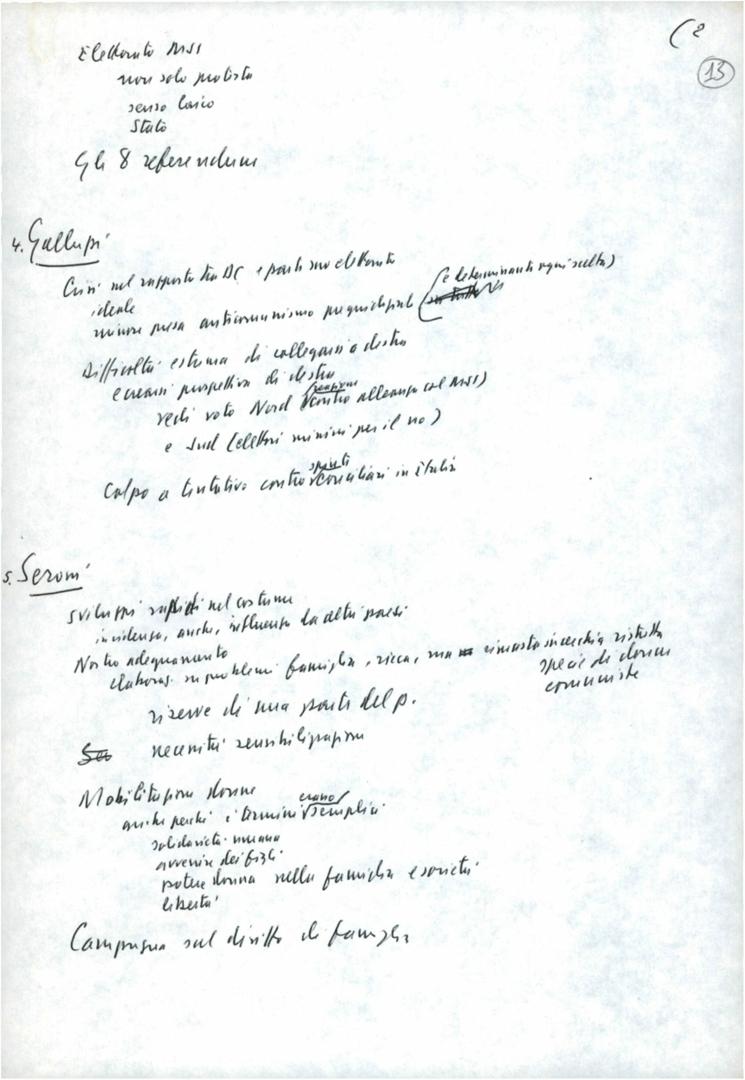 (2
13
Elettorato MSI
non solo protesta
senso laico
Stato
Gli 8 referendum
4. Galluzzi
Crisi nel rapporto tra DC e parte suo elettorato
ideale
minore presa anticomunismo pregiudiziale (è determinante ogni scelta)
Difficoltà estrema di collegarsi a destra
e crearsi prospettiva di destra
vedi voto Nord (reazione contro alleanza col MSI)
e Sud (elettori missini per il no)
Colpo a tentativo contro spinte conciliari in Italia
5. Seroni
Sviluppi rapidi nel costume
incidenza, anche, influenza da altri paesi
Nostro adeguamento
elaboraz. su problemi famiglia, ricca, ma rimasta in cerchia ristretta
specie di donne
comuniste
riserve di una parte del p.
necessità sensibilizzazione
Mobilitazione donne
anche perché i termini erano semplici
solidarietà umana
avvenire dei figli
potere donna nella famiglia e società
libertà
Campagna sul diritto di famiglia